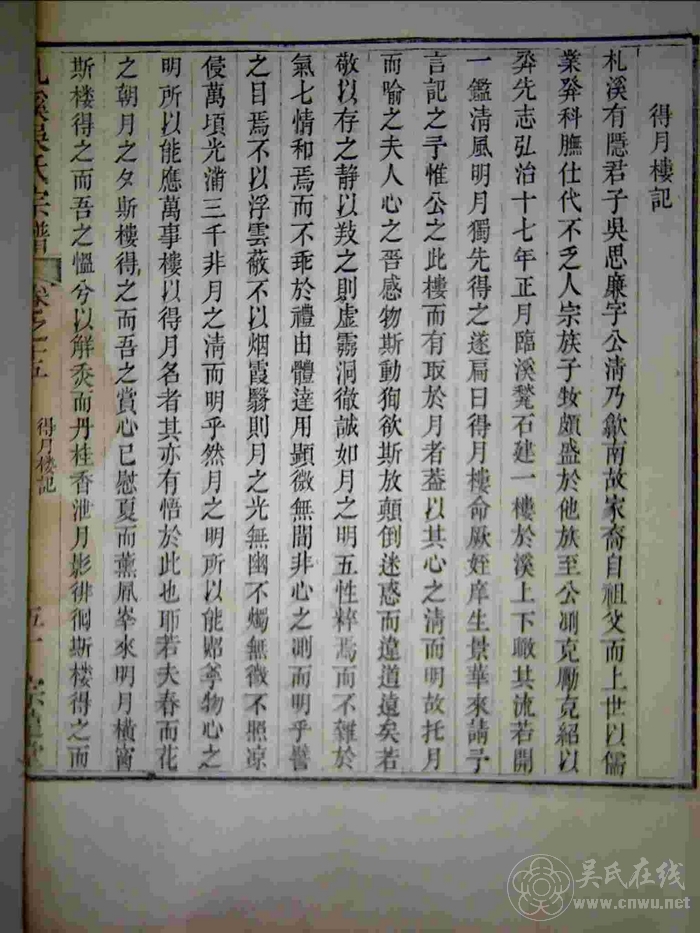 得月樓記
札溪有隱君子吳思廉字公清乃歙南故家裔自祖父而上世以儒
業發科膴仕代不乏人宗族子姓頗盛於他族至公則克勵克紹以
葬先志弘治十七年正月臨溪甃石建一樓於溪上下瞰其流若開
一鑑清風明月獨先得之遂扁曰得月樓命厥姪庠生景華來請予
言記之予惟公之此樓而有取於月者蓋以其心之清而明故托月
而喻之夫人心之吾感物斯動狥欲斯放顛倒迷惑而違道遠矣若
敬以存之静以敎之則虚霧洞徹誠如月之明五性粹焉而不雜於
氣七情和焉而不乖於禮由體達用顯微無間非心之測而明乎譬
之目焉不以浮雲蔽不以烟霞翳則月之光無幽不燭無微不照凉
侵萬頃光滿三千非月之清而明乎然月之明所以能照羣物心之
明所以能應萬事樓以得月名者其亦有悟於此也耶若夫春而花
之朝月之夕斯樓得之而吾之賞心已慰夏而薰風峯來明月橫窗
斯楼得之而吾之慍兮以解秋而丹桂香泄月影徘徊斯楼得之而
札溪吳氏宗譜
卷之十五
得月楼記
五十